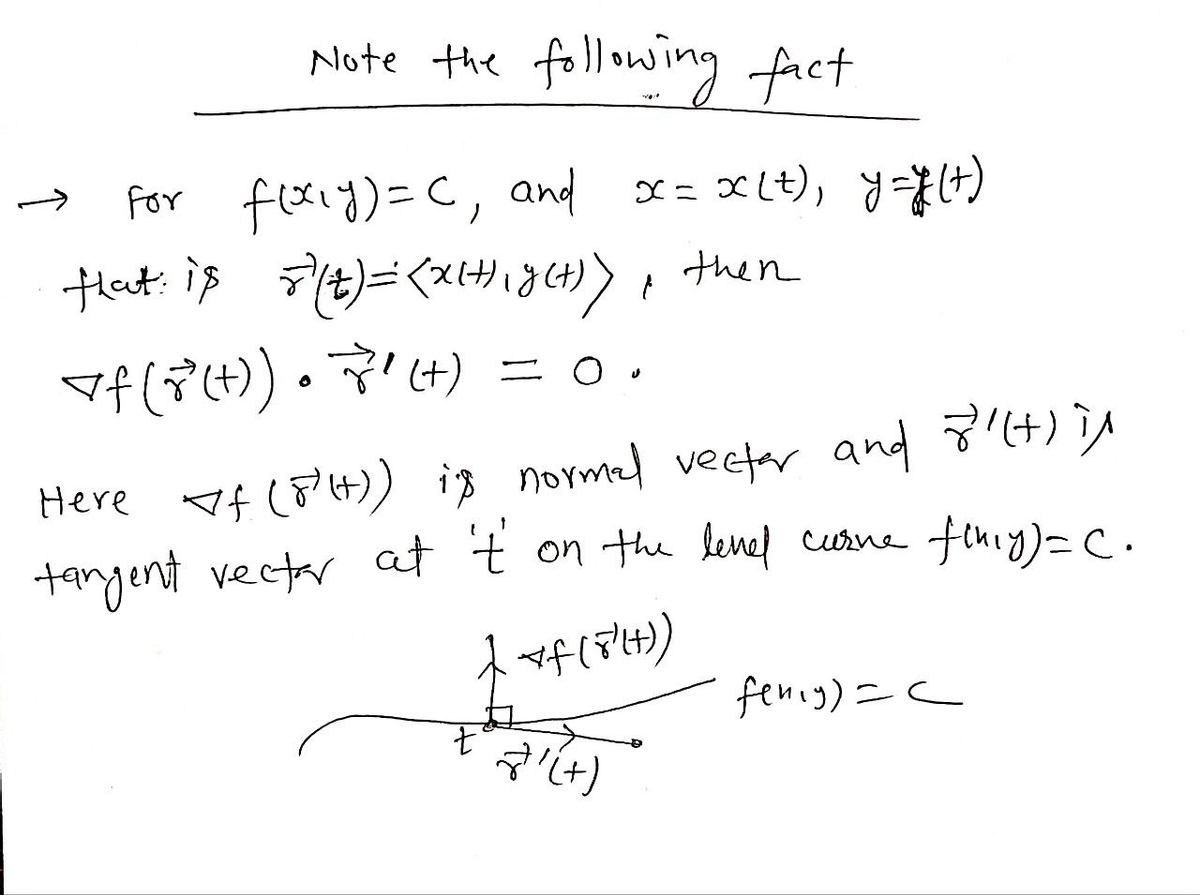 Note the following fact
→ For f(x,y)=C, and x = x(t), y=y(t)
that is r⃗(t)=⟨x(t),y(t)⟩, then
∇f(r⃗(t)) • r⃗'(t) = 0.
Here ∇f(r⃗(t)) is normal vector and r⃗'(t) is
tangent vector at 't' on the level curve f(x,y)=C.
∇f(r⃗(t))
f(x,y)=C
t
r⃗'(t)